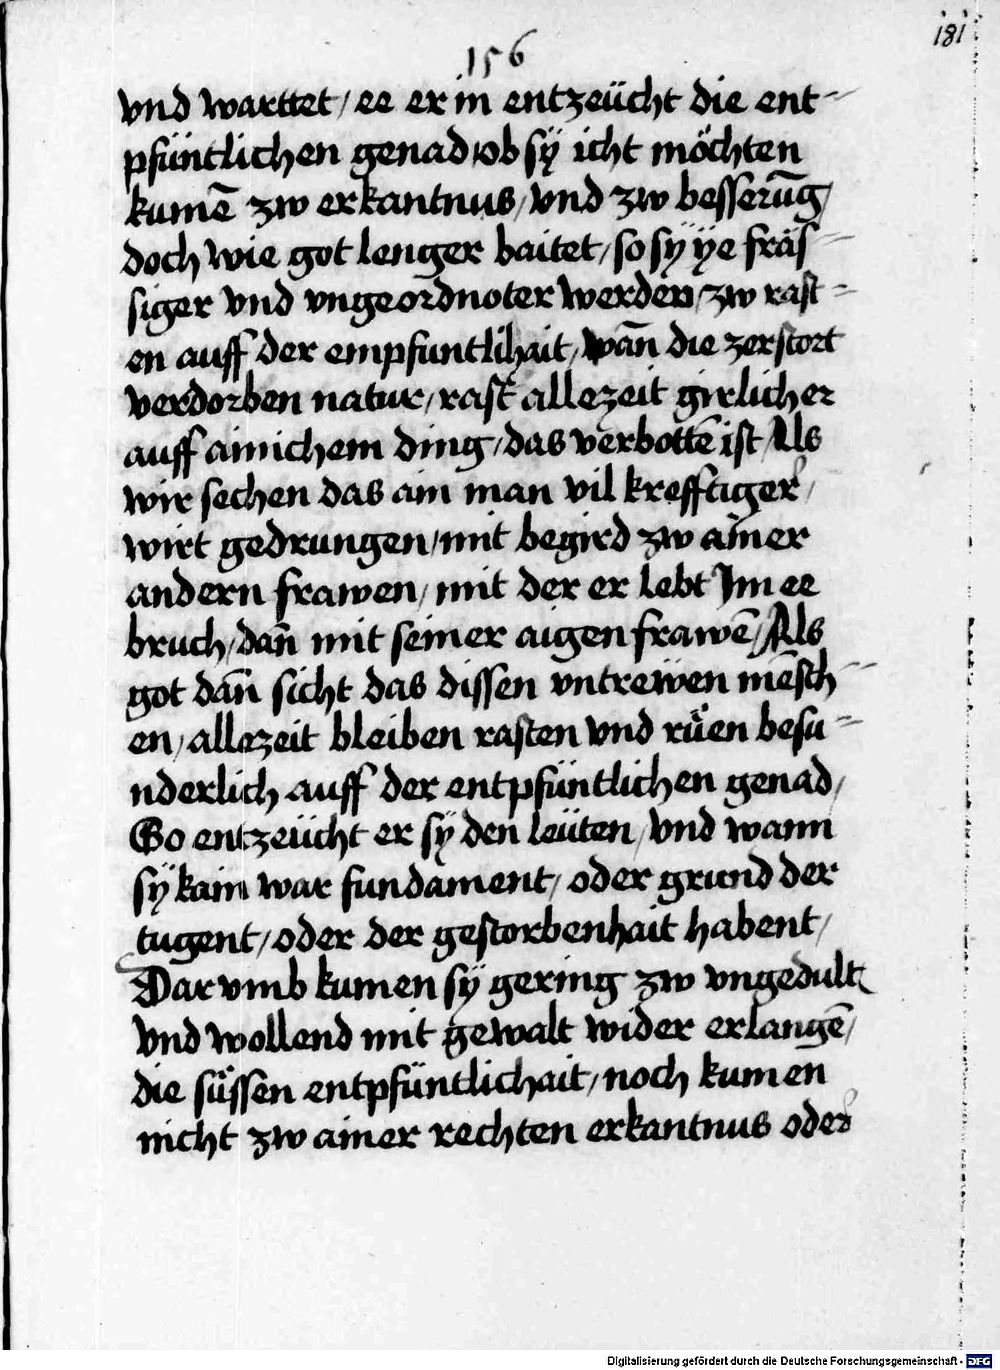 181
156
vnd warttet / ee er in entzeücht die ent=
pfüntlichen genad / ob sÿ icht möchten
kumē zw erkantnus / vnd zw besserūg /
doch wie got lenger baitet / so sÿ ÿe fräs=
siger vnd vngeordnoter werden / zw rast=
en auff der empfuntlihait / wān die zerstort
verdorben natur / rast allezeit girlicher
auff ainichem ding / das verbottē ist / Als
wir sechen das ain man vil krefftiger /
wirt gedrungen / mit begird zw ainer
andern frawen / mit der er lebt Im ee
bruch / dan̄ mit seiner aigen frawē / Als
got dan̄ sicht das dissen vntreẅen mēsch=
en / allezeit bleiben rasten vnd rüen besu=
nderlich auff der entpfüntlichen genad /
So entzeücht er sÿ den leüten / vnd wann
sÿ kain war fundament / oder grund der
tugent / oder der gestorbenhait habent /
Dar vmb kumen sÿ gering zw vngedult
vnd wollend mit gewalt wider erlangē /
die süssen entpfüntlichait / noch kumen
nicht zw ainer rechten erkantnus oder
Digitalisierung gefördert durch die Deutsche Forschungsgemeinschaft - DFG